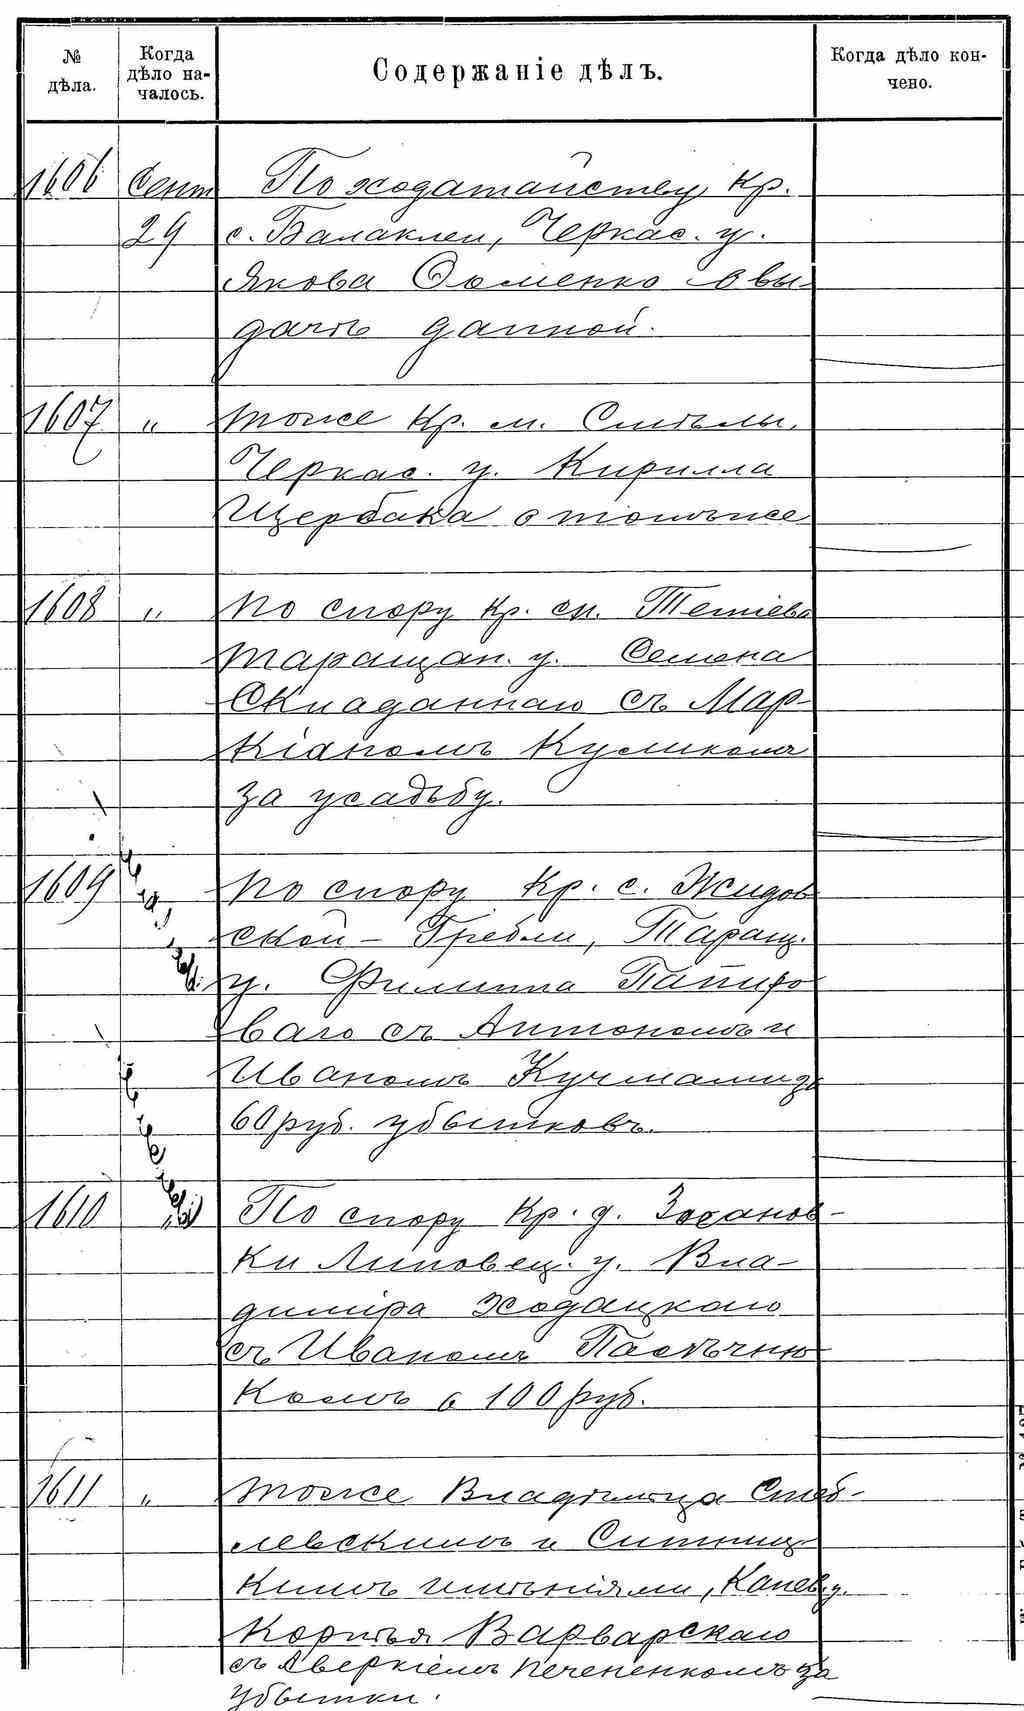 № дѣла.
Когда дѣло началось.
Содержаніе дѣлъ.
Когда дѣло кончено.
1606 Сент По ходатайству Кр.
29 с. Балаклеи, Черкас. у.
Якова Фоменко о вы-
дачѣ данной.
1607 „ тоже Кр. м. Смѣлы,
Черкас. у. Кирилла
Щербака о томъже
1608 „ По спору Кр. сл. Тетіева
Таращан. у. Семена
Складаннаго съ Мар-
кіаномъ Куликомъ
за усадьбу.
1609 По спору Кр. с. Жидов
ской - Гребли, Таращ.
у. Филиппа
ваго съ Антономъ и
Иваномъ Кучмами за
60 руб. убытковъ.
1610 „ По спору Кр. д.
ки Липовец. у. Вла-
диміра Ходацкаго
съ Иваномъ Пасѣчни
комъ о 100 руб.
1611 „ тоже Владѣльца Стеб-
левскимъ и Ситниц
кимъ имѣніями, Канев. у.
Варварскаго
съ Аверкіемъ Печененкомъ за
убытки.